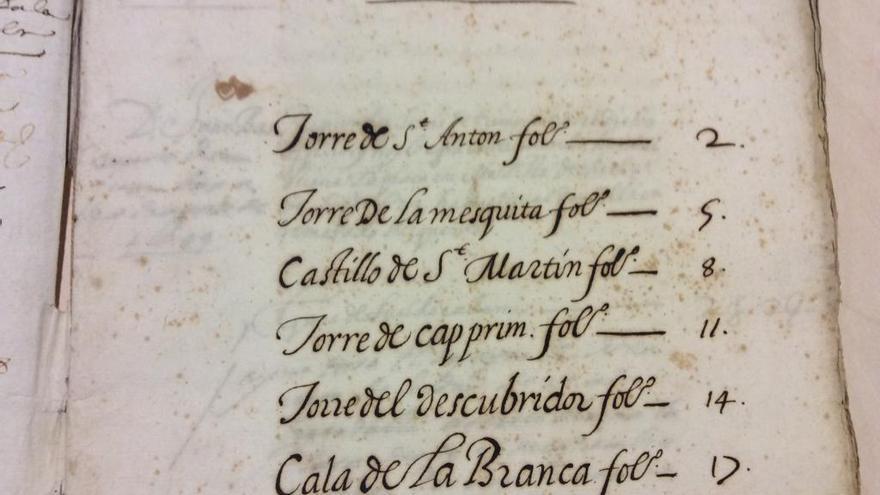 Torre de S.t Anton fol.s — 2.
Torre De la mesquita fol.s — 5.
Castillo de S.t Martín fol.s — 8.
Torre de cap prim. fol.s — 11.
Torre del descubridor fol.s — 14.
Cala de la Branca fol.s — 17.